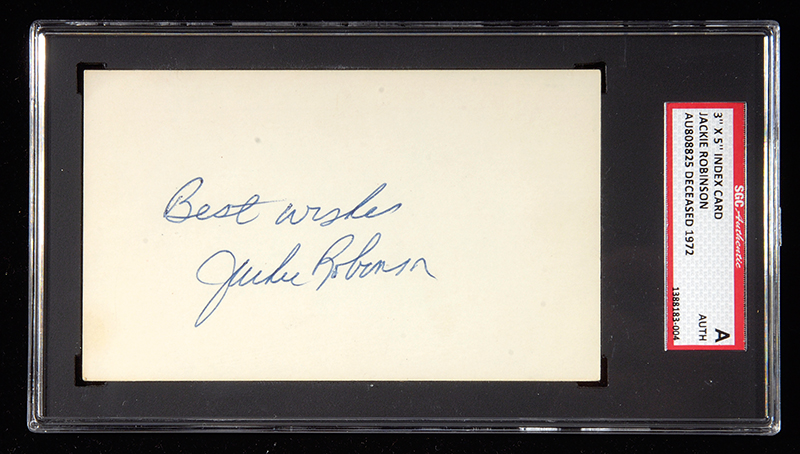 Best wishes
Jackie Robinson
SGC Authentic
3" X 5" INDEX CARD
JACKIE ROBINSON
AU808825 DECEASED 1972
A
AUTH
1388183-004